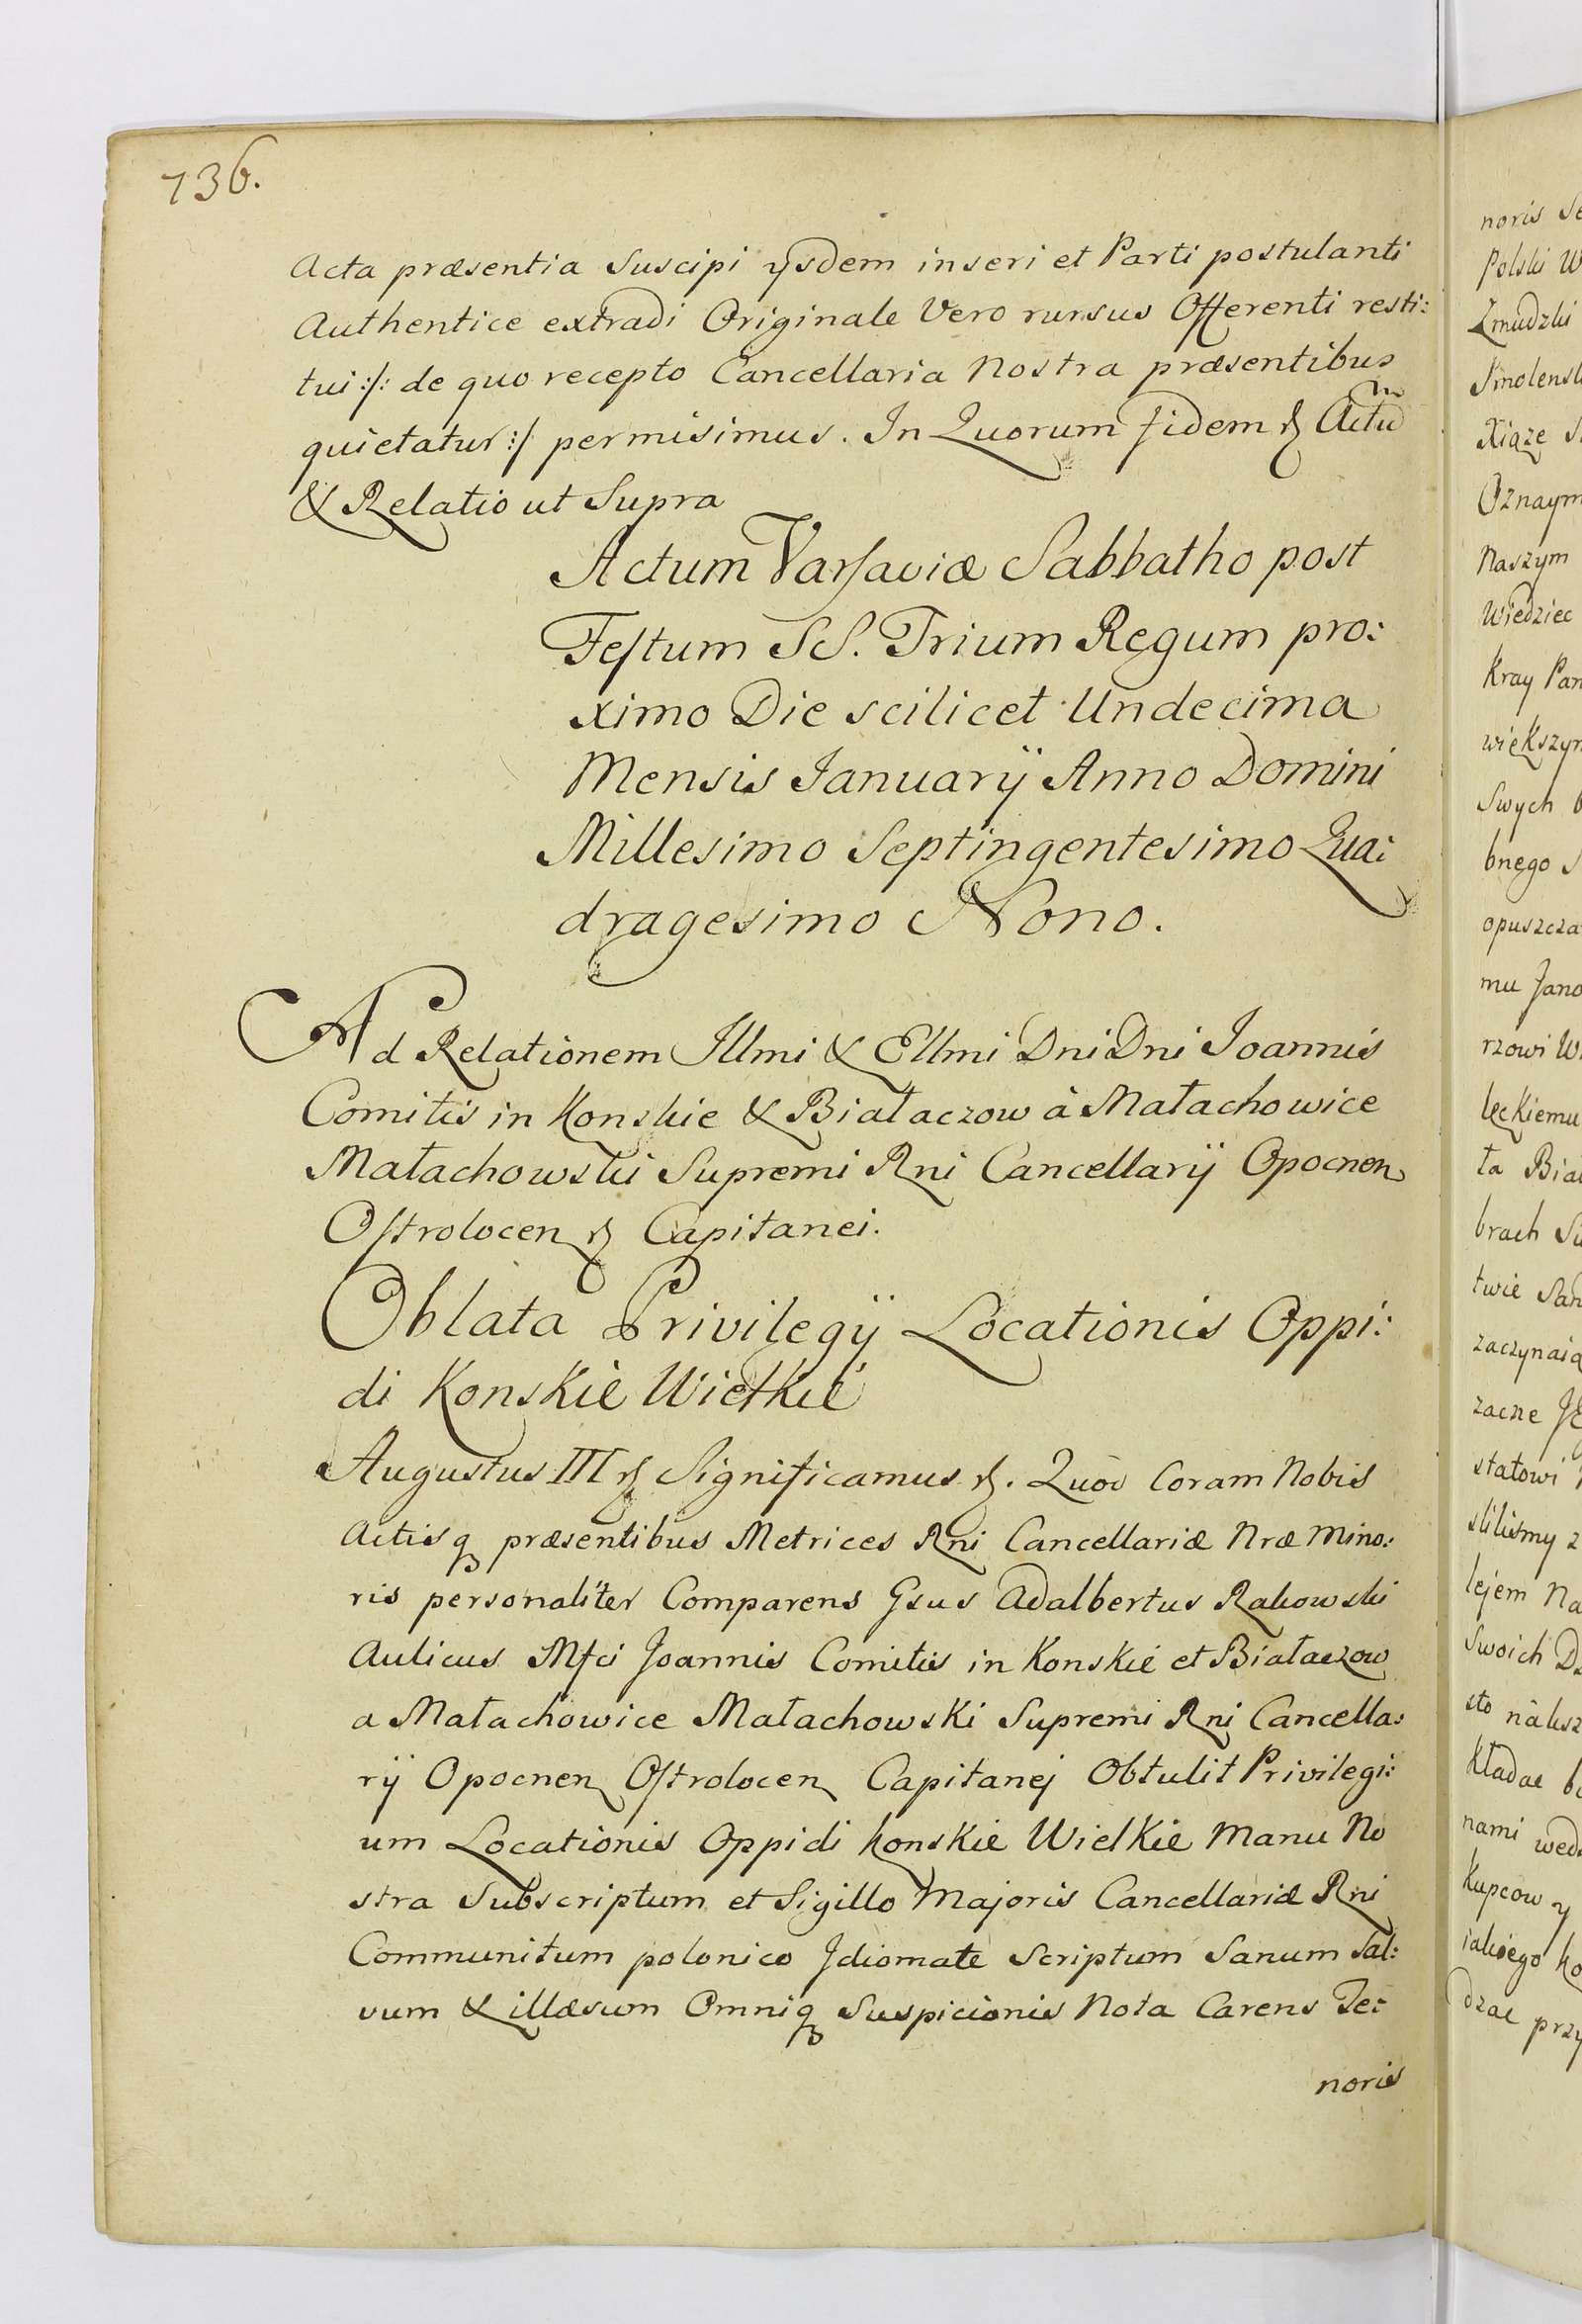 136.
Acta præsentia Suscipi ysdem inseri et Parti postulanti
Authentice extradi Originale Vero rursus Offerenti resti:
tui :/: de quo recepto Cancellaria Nostra præsentibus
quietatur :/ permisimus. In Quorum fidem & Actũ
& Relatio ut Supra
Actum Varsaviæ Sabbatho post
Festum SS. Trium Regum pro:
ximo Die scilicet Undecima
Mensis Januarÿ Anno Domini
Millesimo Septingentesimo Qua:
dragesimo Nono.
Ad Relationem Illmi & Ellmi Dni Dni Joannis
Comitis in Konskie & Białaczow à Małachowice
Małachowski Supremi Rni Cancellarÿ Opocnen
Ostrolocen & Capitanei.
Oblata Privilegÿ Locationis Oppi:
di Konskie Wielkie
Augustus III & Significamus &. Quòd Coram Nobis
Actisq præsentibus Metrices Rni Cancellariæ Nræ Mino:
ris personaliter Comparens Gsus Adalbertus Rakowski
Aulicus Mfci Joannis Comitis in Konskie et Białaczow
a Małachowice Małachowski Supremi Rni Cancella:
rÿ Opocnen Ostrolocen Capitanej Obtulit Privilegi:
um Locationis Oppidi Konskie Wielkie Manu No
stra Subscriptum et Sigillo Majoris Cancellariæ Rni
Communitum polonico Jdiomate Scriptum Sanum Sal:
vum & illæsum Omniq Suspicionis Nota Carens Te:
noris
noris
Polski
Zmudzki
Smolensk
Xiąze
Oznaym
Naszym
Wiedziec
Kray Pan
większym
Swych
bnego
opuszcza
mu Jano
rzowi
łęckiemu
ta Biał
brach
twie San
zaczynaią
zacne
statowi
sliliśmy z
lejem Na
Swoich
sto
kładac
nami wed
Kupcow y
iakiego
dzac przy